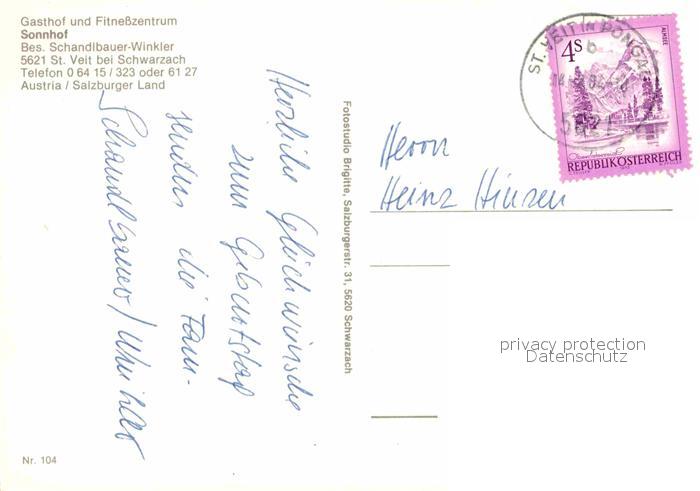 Gasthof und Fitneßzentrum
Sonnhof
Bes. Schandlbauer-Winkler
5621 St. Veit bei Schwarzach
Telefon 0 64 15 / 323 oder 61 27
Austria / Salzburger Land
Herzliche Glückwünsche
zum Geburtstag
senden die Fam-
Schandlbauer/Winkler
Nr. 104
Fotostudio Brigitte, Salzburgerstr. 31, 5620 Schwarzach
ST. VEIT IM PONGAU
b
5621
4S
ALMSEE
REPUBLIK ÖSTERREICH
Herrn
Heinz Hinzen
privacy protection
Datenschutz